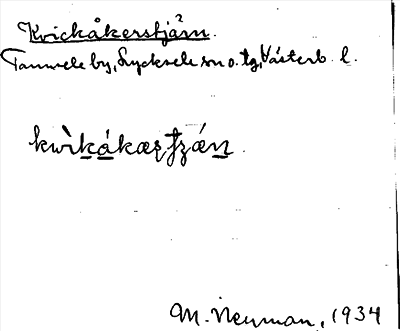 Kvickåkerstjärn.
Tannsele by, Lycksele sn o. tg, Västerb. l.
kwìkákær̨tʒán
M. Neuman, 1934